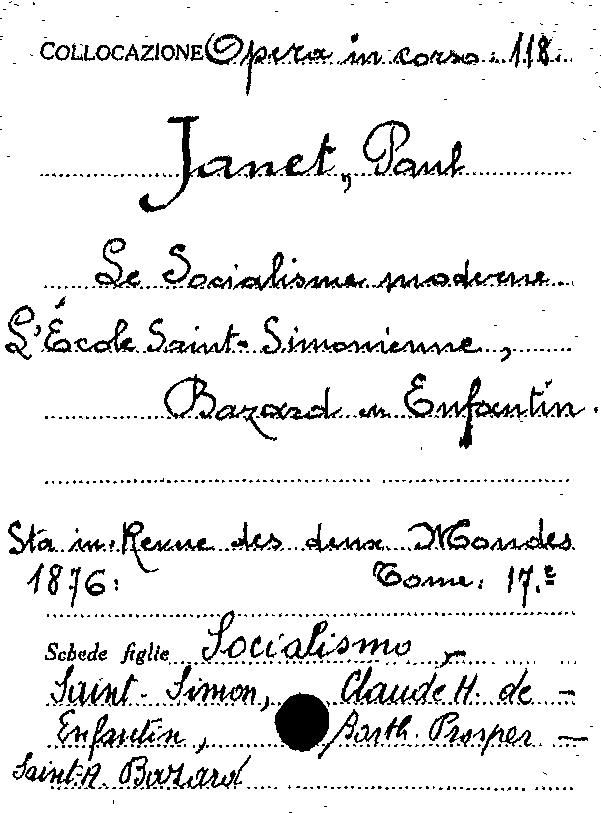 COLLOCAZIONE Opera in corso. 118.
Janet, Paul
Le Socialisme moderne.
L'École Saint-Simonienne,
Bazard en Enfantin.
Sta in: Revue des deux Mondes
1876: Tome: 17.e
Schede figlie Socialismo, -
Saint-Simon, Claude H. de -
Enfantin, Barth. Prosper —
Saint-A. Bazard